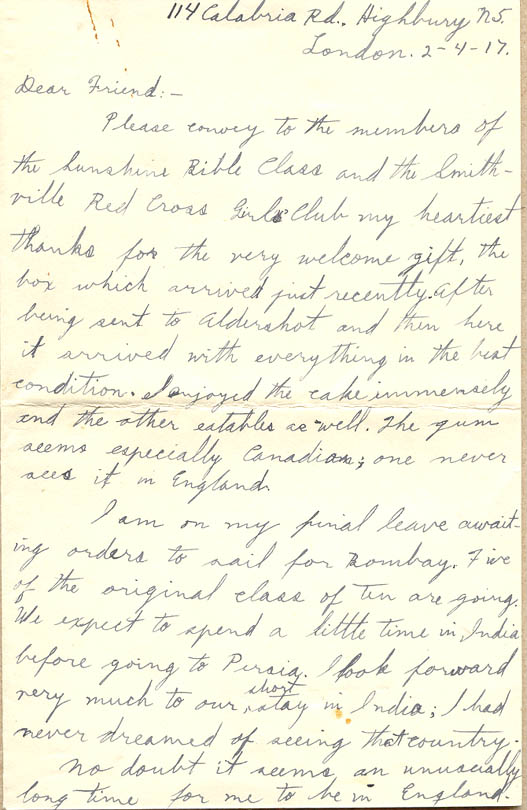 114 Calabria Rd., Highbury N5.
London. 2-4-17.
Dear Friend:-
Please convey to the members of
the Sunshine Bible Class and the Smith-
ville Red Cross Girls Club my heartiest
thanks for the very welcome gift, the
box which arrived just recently. After
being sent to Aldershot and then here
it arrived with everything in the best
condition. I enjoyed the cake immensely
and the other eatables as well. The gum
seems especially Canadian; one never
sees it in England.
I am on my final leave await-
ing orders to sail for Bombay. Five
of the original class of ten are going.
We expect to spend a little time in India
before going to Persia. I look forward
very much to our short stay in India; I had
never dreamed of seeing that country.
No doubt it seems an unusually
long time for me to be in England.